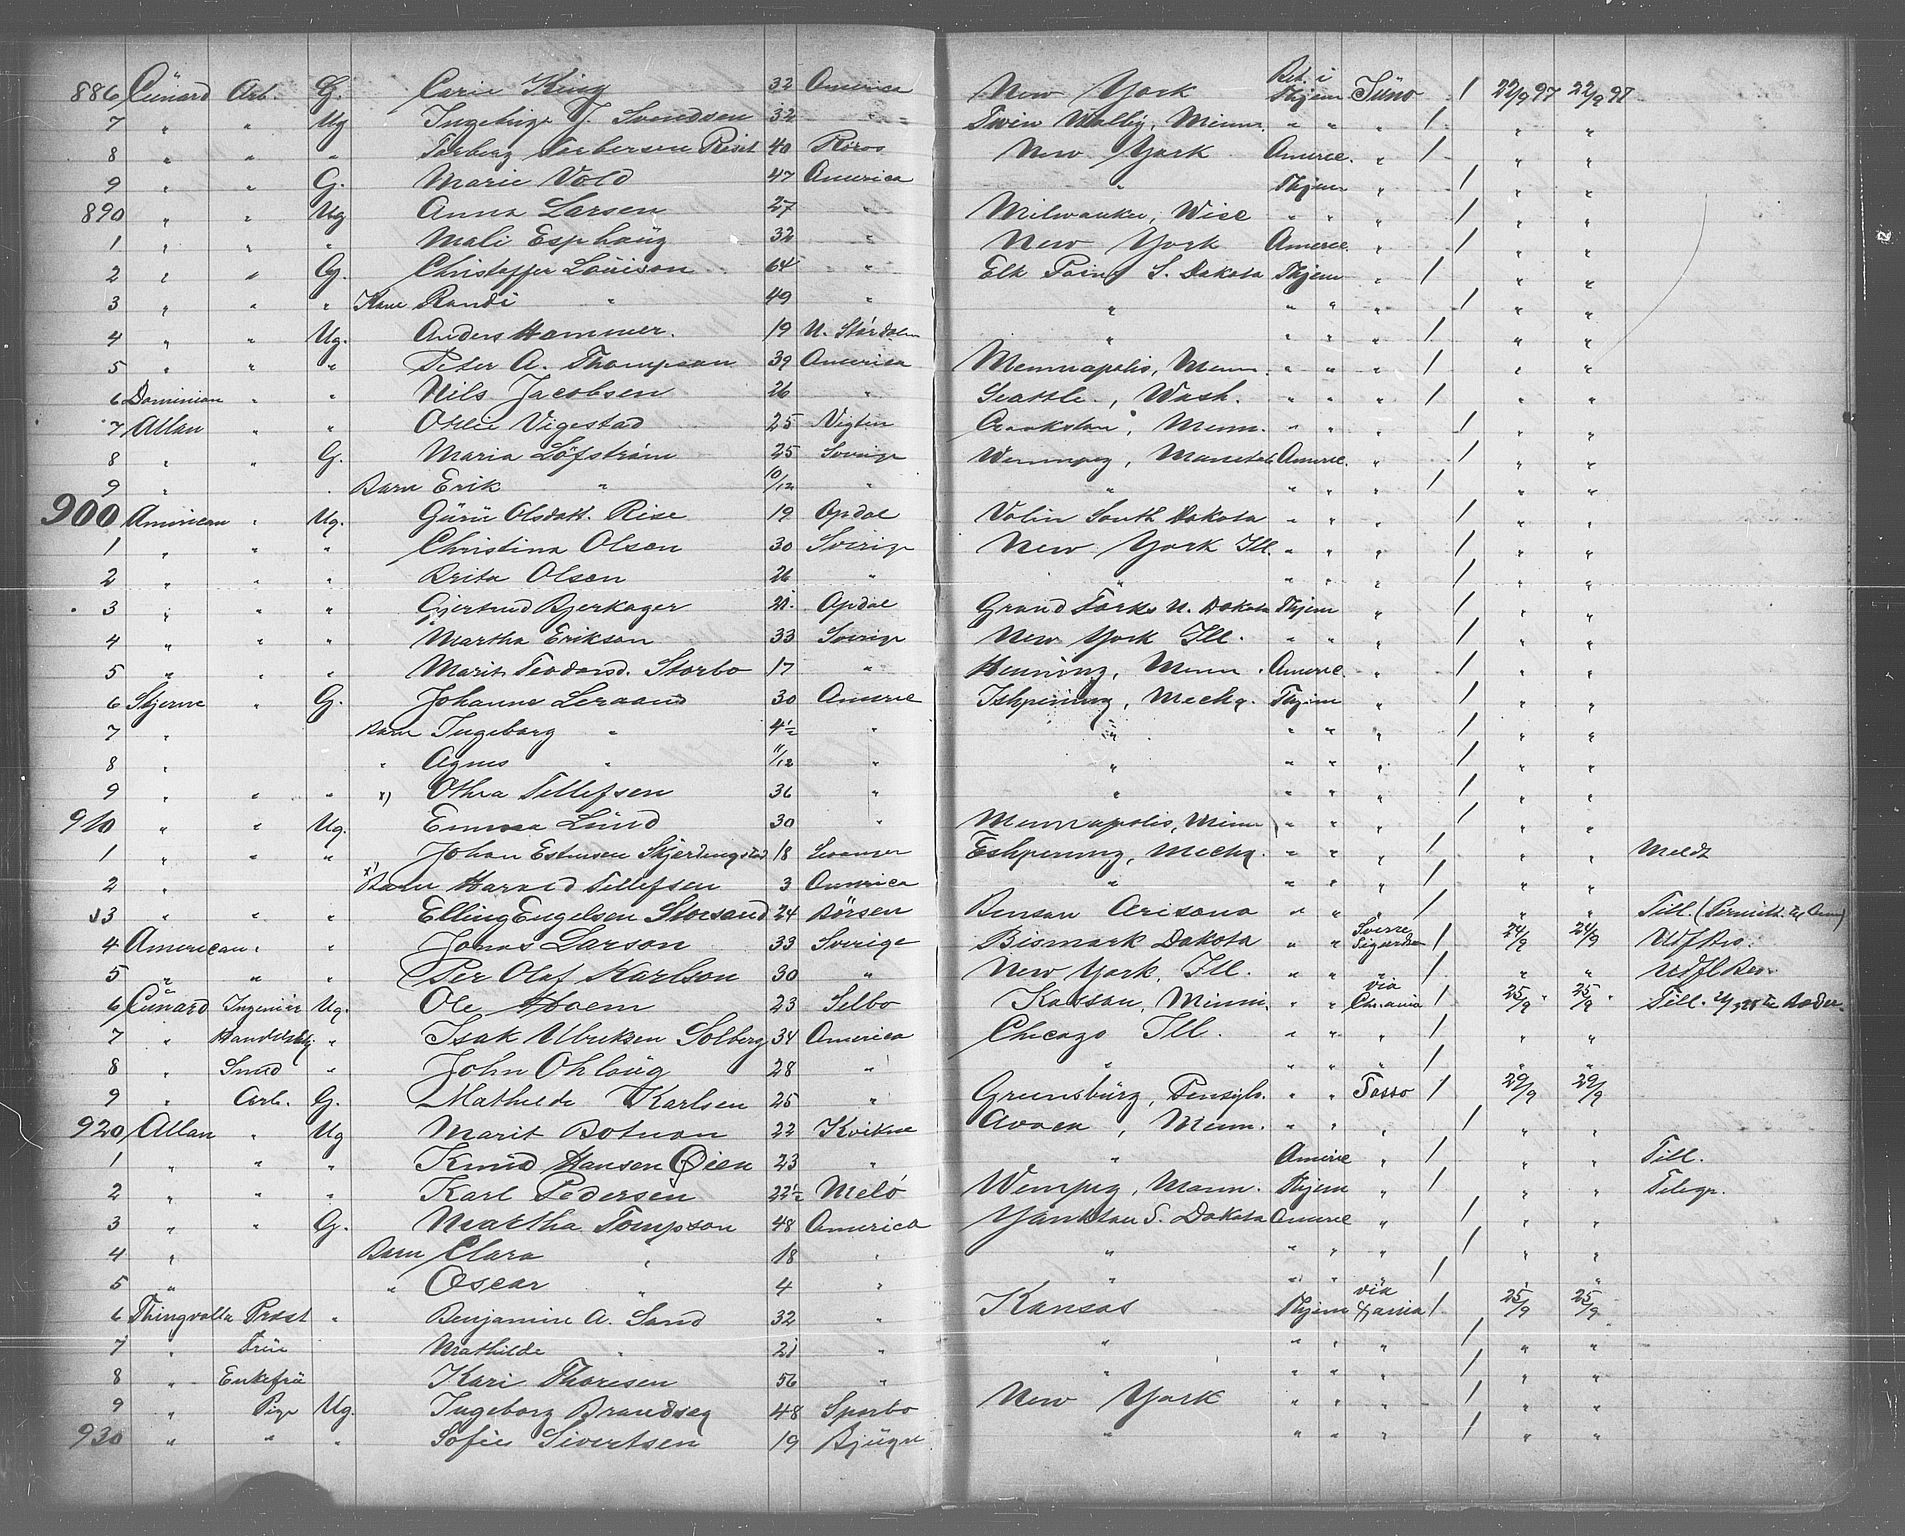 886 Cünard Arb. G. Carie King 32 America New York Bet. i Thjem Jüno 1 22/9 97 22/9 97
7 " " Ug Ingebrigt J. Svendsen 32 " Twin Valley, Minn. " " " 1 " "
8 " " " Torberg Torbersen Riset 40 Röros New York Americ. " 1 " "
9 " " G. Marie Vold 47 America " Thjem " 1 " "
890 " " Ug Anna Larsen 27 " Milwaukee, Wisc " " " 1 " "
1 " " " Mali Esphaüg 32 " New York Americ. " 1 " "
2 " " G. Christoffer Loüison 64 " Elk Point S. Dakota Thjem " 1 " "
3 " " " Kone Randi " 49 " " " " " 1 " "
4 " " Ug. Anders Hammer. 19 N. Stördalen " " " " 1 " "
5 " " " Peter A. Thompson 39 America Mennapolis, Menn. " " " 1 " "
6 Dominion " " Nils Jacobsen 26 " Seattle, Wash. " " " 1 " "
7 Allan " " Otilie Vigestad 25 Vigten Crookston, Menn. " " " 1 " "
8 " " G. Maria Löfström 25 Sverige Wennipeg, Manetob Americ. " 1 " "
9 " " Barn Erik " 10/12 " " " " " 1 " "
900 American " Ug. Gürü Olsdatt. Rise 19 Opdal Volin South Dakota " " " 1 " "
1 " " " Christina Olsen 30 Sverige New York Ill. " " " 1 " "
2 " " " Brita Olsen 26 " " " " " 1 " "
3 " " " Gjertrud Bjerkager 21. Opdal Grand Forks N. Dakota Thjem " 1 " "
4 " " " Martha Erikson 33 Sverige New York Ill. " " " 1 " "
5 " " " Marit Teodorsd. Storbo 17 " Henning, Menn. Americ. " 1 " "
6 Stjerne " G. Johanne Leraand 30 Americ Ishpeming, Mechg. Thjem " 1 " "
7 " Barn Ingeborg " 4½ " " " " " 1 " "
8 " " Agnes " 11/12 " " " " " 1 " "
9 " " " x) Othea Tellefsen 36 " " " " " 1 " "
910 " " Ug. Emma Lünd 30 " Mennapolis, Minn " " " 1 " "
1 " " " Johan Estensen Skjerdingstad 18 Leranger Eshpeming, Mechg. " " " 1 " " Meldt
2 " x) Barn Harald Tellefsen 3 America " " " " 1 " "
13 " " " Elling Engelsen Storsand 24 Börsen Benson Arisona " " " 1 " " Till.
4 American " " Jonas Larson 33 Sverige Bismark Dakota " " Sverre Sigurdsen 1 24/9 24/9
5 " " " Per Olaf Karlson 30 " New York, Ill. " " " 1 " "
6 Cünard Ingeniör Ug. Ole Hoem 23 Selbo Kasson, Minni. " " via Chr.ania 1 25/9 25/9 Till.
7 " " Isak Ulriksen Solberg 34 America Chicago Ill. " " " 1 " "
8 " Smed " John Ohlaüg 28 " " " " " 1 " "
9 " Arb. G. Mathilde Karlsen 25 " Greensbürg, Pensylv. " " Tasso 1 29/9 29/9
920 Allan " Ug Marit Botnan 22 Kvikne Avoca, Minn. " " " 1 " "
1 " " " Knud Hansen Öien 23 " " Americ " 1 " " Till.
2 " " " Karl Pedersen 22½ Melö Wenipeg, Mann. Thjem " 1 " " Telegr.
3 " " G. Martha Tompson 48 America Yankton S. Dakota Americ " 1 " "
4 " Barn Clara " 18 " " " " " 1 " "
5 " " Oscar " 4 " " " " " 1 " "
6 Thingvalla Präst " Benjamin A. Sand 32 " Kansas Thjem via X ania 1 25/9 25/9
7 " Früe Mathilde " 21 " " " " " 1 " "
8 " Enkefrü Kari Thoresen 56 " " " " " 1 " "
9 " Pige Ug. Ingeborg Brandseg 48 Sparbo New York " " " 1 " "
930 " " " Sofie Sivertsen 19 Bjügn " " " " 1 " "